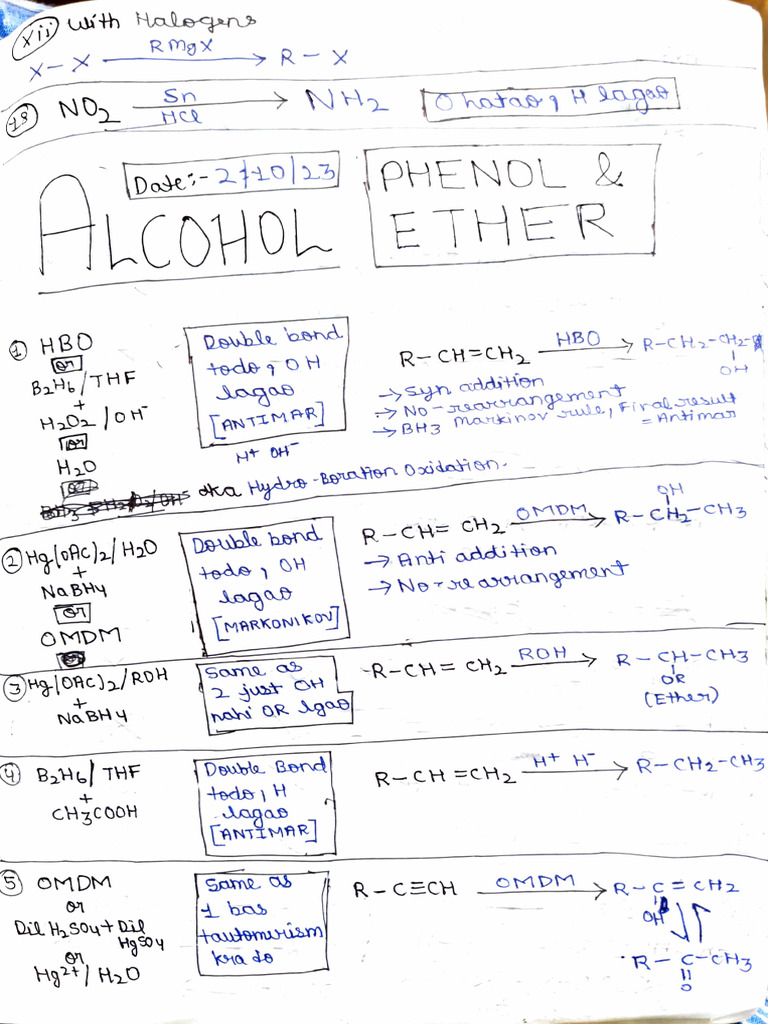 xii) With Halogens
X-X RMgX → R-X
18 NO2 Sn HCl → NH2 O hatao, H lagao
Date:- 2/10/23
ALCOHOL PHENOL &
ETHER
① HBO
or
B2H6/THF
+
H2O2/OH-
or
H2O
or
Double bond
todo, OH
lagao
[ANTIMAR]
H+ OH-
R-CH=CH2 HBO → R-CH2-CH2-
OH
→ Syn addition
→ No-rearrangement
→ BH3 Markinov rule, Final result
= Antimar
aka Hydro-Boration Oxidation.
② Hg(OAc)2/H2O
+
NaBH4
or
OMDM
Double bond
todo, OH
lagao
[MARKONIKOV]
R-CH=CH2 OMDM → R-CH2-CH3
OH
→ Anti addition
→ No-rearrangement
③ Hg(OAc)2/ROH
+
NaBH4
Same as
2 just OH
nahi OR lgao
R-CH=CH2 ROH → R-CH-CH3
OR
(Ether)
④ B2H6/THF
+
CH3COOH
Double Bond
todo, H
lagao
[ANTIMAR]
R-CH=CH2 H+ H- → R-CH2-CH3
⑤ OMDM
or
Dil H2SO4+Dil
HgSO4
or
Hg2+/H2O
Same as
1 bas
tautomerism
kra do
R-C≡CH OMDM → R-C=CH2
OH
R-C-CH3
O